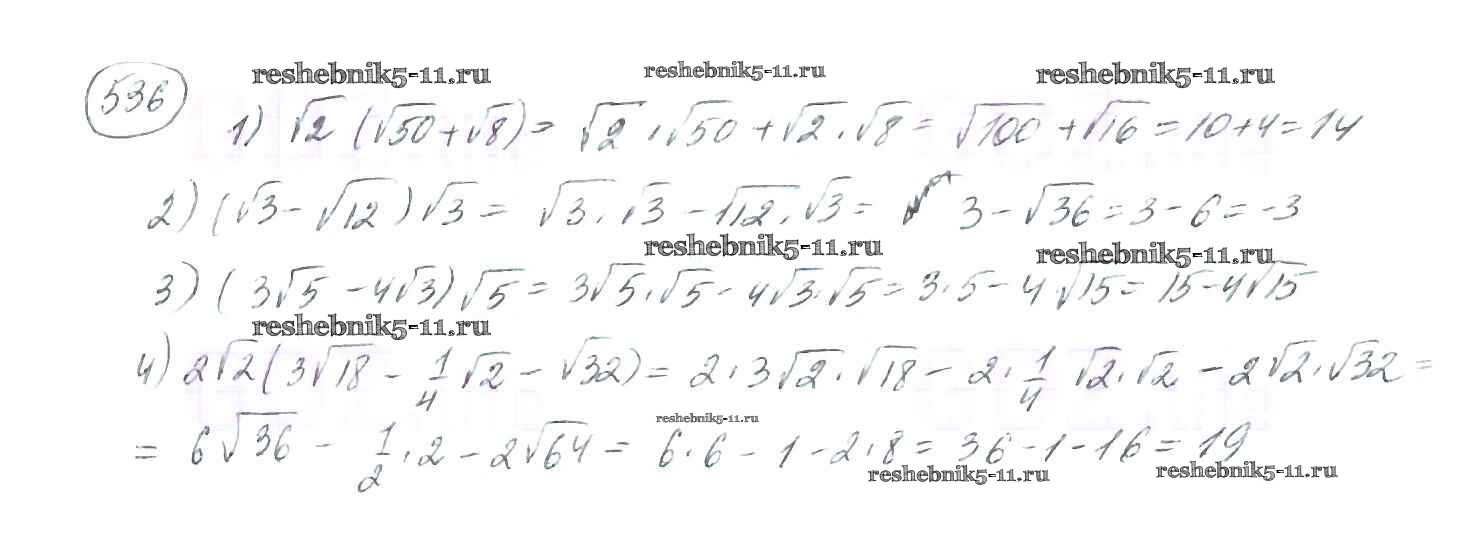 reshebnik5-11.ru reshebnik5-11.ru reshebnik5-11.ru
536
1) √2 (√50 + √8) = √2 · √50 + √2 · √8 = √100 + √16 = 10 + 4 = 14
2) (√3 − √12) √3 = √3 · √3 − √12 · √3 = 3 − √36 = 3 − 6 = −3
reshebnik5-11.ru reshebnik5-11.ru
3) (3√5 − 4√3) √5 = 3√5 · √5 − 4√3 · √5 = 3 · 5 − 4 √15 = 15 − 4√15
reshebnik5-11.ru
4) 2√2 (3√18 − 1/4 √2 − √32) = 2 · 3√2 · √18 − 2 · 1/4 √2 · √2 − 2√2 · √32 =
reshebnik5-11.ru
= 6√36 − 1/2 · 2 − 2√64 = 6 · 6 − 1 − 2 · 8 = 36 − 1 − 16 = 19
reshebnik5-11.ru reshebnik5-11.ru